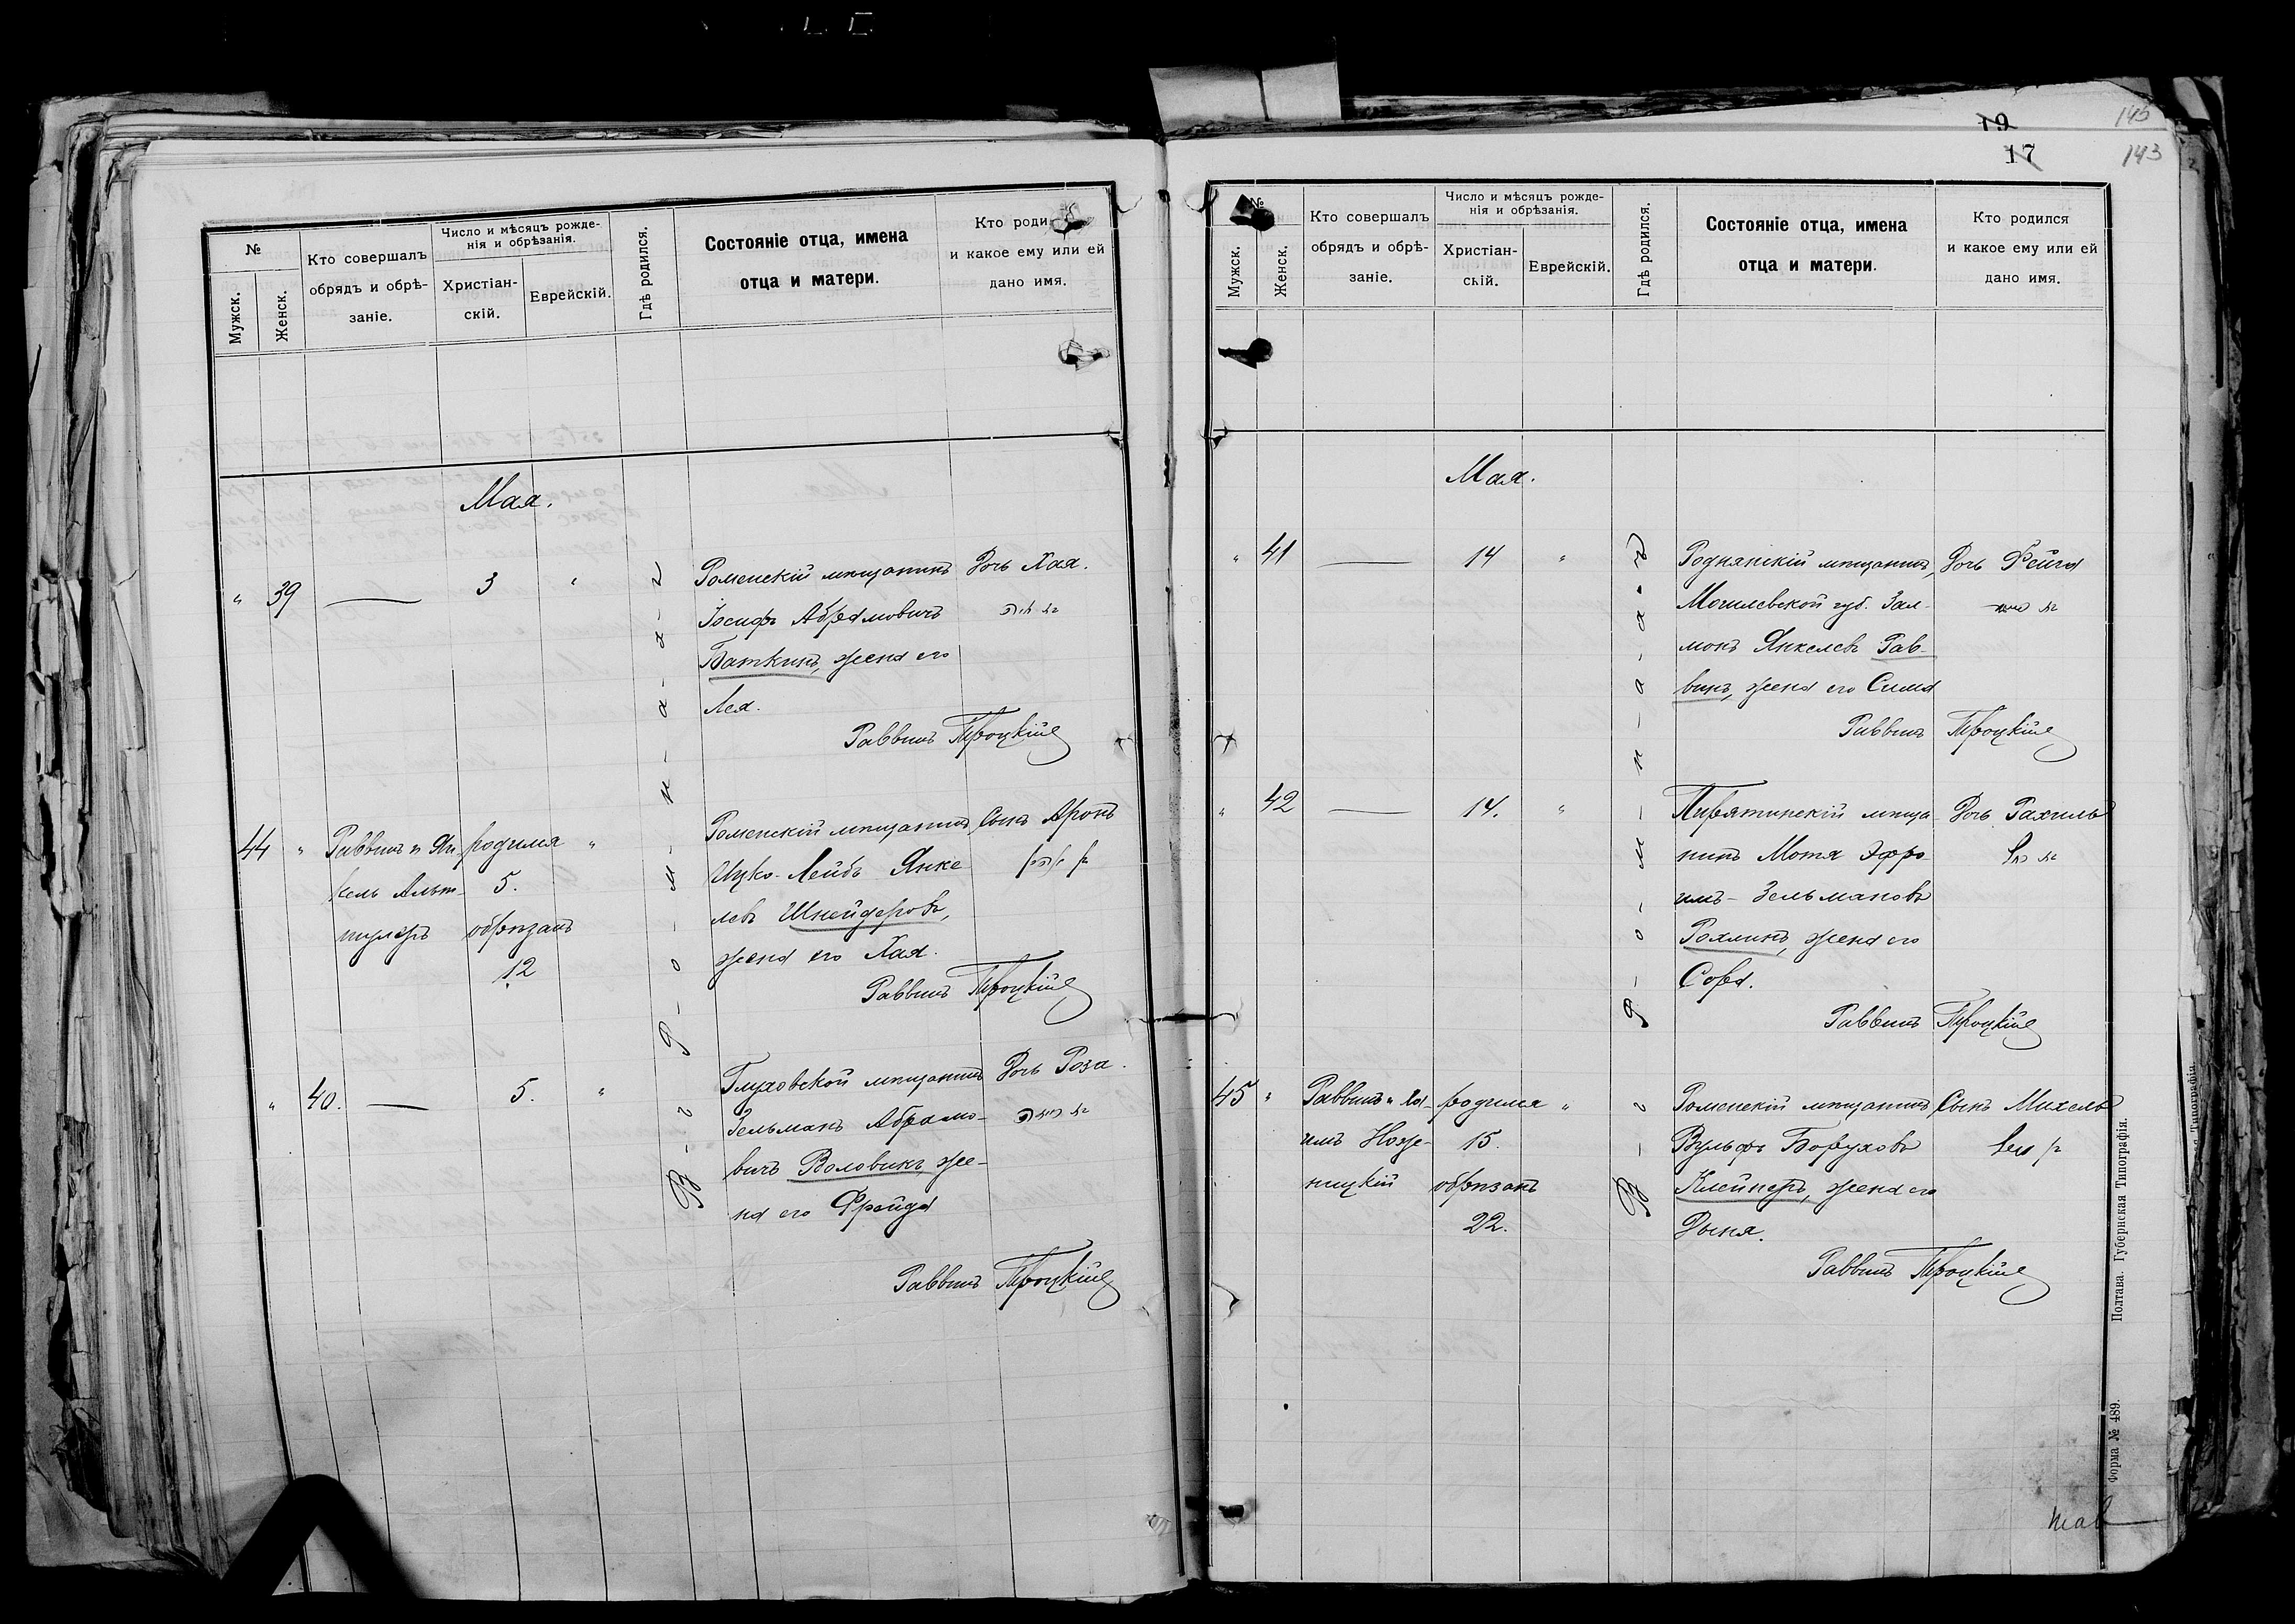 №
Мужск.
Женск.
Кто совершалъ
обрядъ и обрѣ-
заніе.
Число и мѣсяцъ рожде-
нія и обрѣзанія.
Христіан-
скій.
Еврейскій.
Гдѣ родился.
Состояніе отца, имена
отца и матери.
Кто роди
и какое ему или ей
дано имя.
Мая.
В г. Р-о-м-н-а-х-ъ
" 39 — 3 "
Роменскій мѣщанинъ
Іосифъ Абрамовичъ
Баткинъ, жена его
Лея.
Дочь Хая.
Раввинъ Троцкій
44 "
Раввинъ и Ян-
кель Альт-
шулеръ
родился "
5.
обрѣзанъ
12
Роменскій мѣщанинъ
Ицко-Лейбъ Янке
левъ Шнейдеровъ,
жена его Хая.
Сынъ Аронъ
Раввинъ Троцкій
" 40. — 5. "
Глуховской мѣщанинъ
Зельманъ Абрамо-
вичъ Воловикъ, же-
на его Фрейда
Дочь Роза.
Раввинъ Троцкій
19
17
143
143
№
Мужск.
Женск.
Кто совершалъ
обрядъ и обрѣ-
заніе.
Число и мѣсяцъ рожде-
нія и обрѣзанія.
Христіан-
скій.
Еврейскій.
Гдѣ родился.
Состояніе отца, имена
отца и матери.
Кто родился
и какое ему или ей
дано имя.
Мая.
В г. Р-о-м-н-а-х-ъ
" 41 — 14 "
Роднянскій мѣщанинъ,
Могилевской губ. Зал-
монъ Янкелевъ Рав-
винъ, жена его Сима
Дочь Фейга
Раввинъ Троцкій
" 42 — 14. "
Пирятинскій мѣща-
нинъ Мотя Эфро-
имъ-Зельмановъ
Рохлинъ, жена его
Сора.
Дочь Рахиль
רחל
Раввинъ Троцкій
45 "
Раввинъ и Ха-
имъ Ноже-
ницкій
родился "
15.
обрѣзанъ
22.
Роменскій мѣщанинъ
Вульфъ Боруховъ
Клейнеръ, жена его
Дыня.
Сынъ Михель
Раввинъ Троцкій
Форма № 489.
Полтава. Губернская Типографія.
Типографія.
май